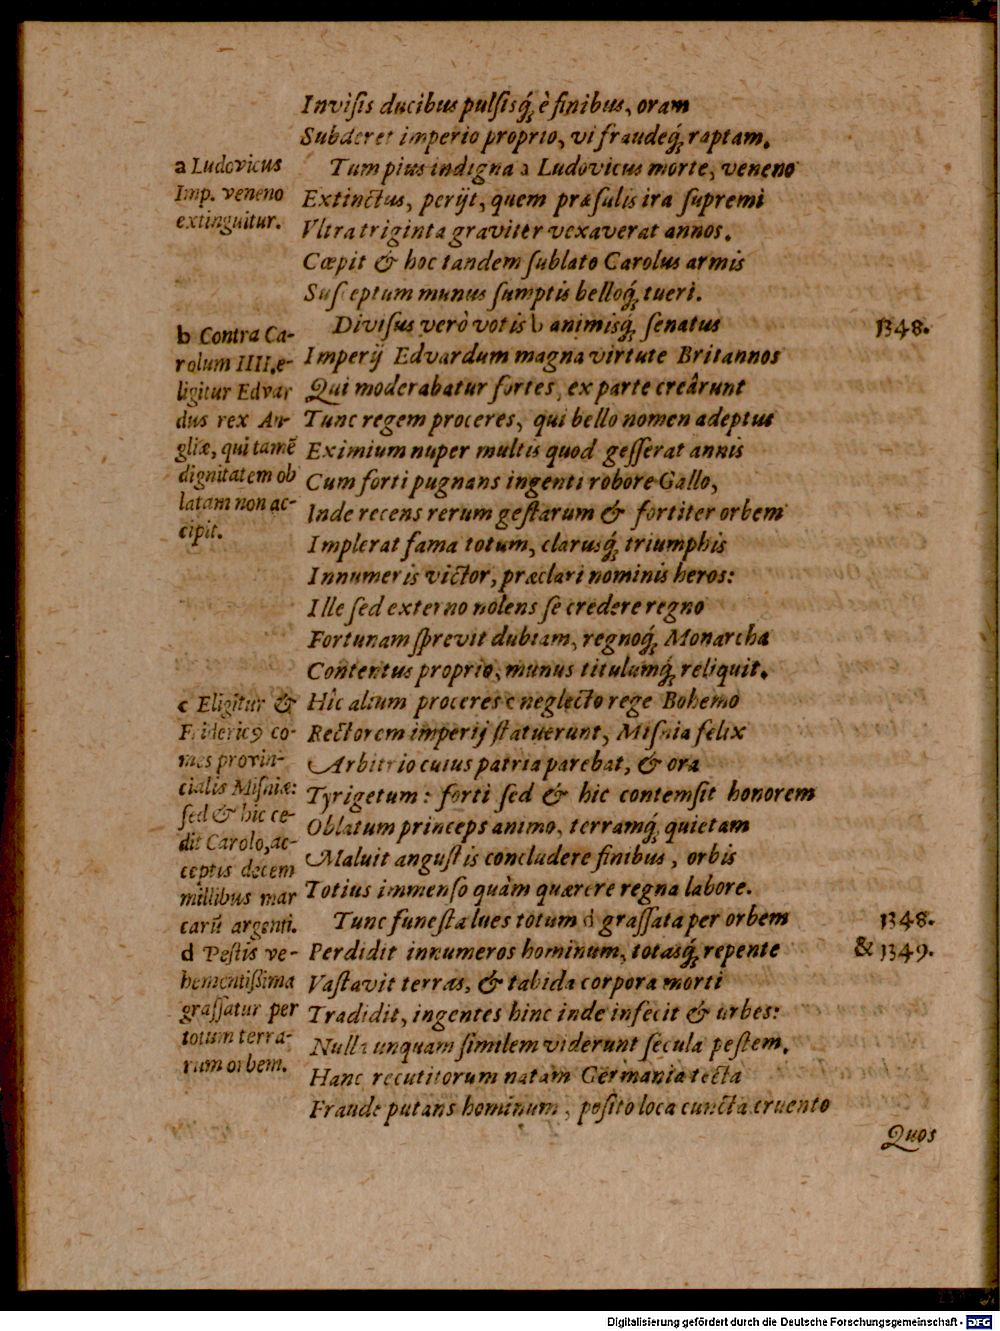 Inviſis ducibus pulſisq́; è finibus, oram
Subderet imperio proprio, vi fraudeq́; raptam.
Tum pius indigna a Ludovicus morte, veneno
Extinctus, perijt, quem præſulis ira ſupremi
Vltra triginta graviter vexaverat annos.
Cœpit & hoc tandem ſublato Carolus armis
Suſceptum munus ſumptis belloq́; tueri.
Diviſus verò votis b animisq́; ſenatus
Imperij Edvardum magna virtute Britannos
Qui moderabatur fortes, ex parte creârunt
Tunc regem proceres, qui bello nomen adeptus
Eximium nuper multis quod geſſerat annis
Cum forti pugnans ingenti robore Gallo,
Inde recens rerum geſtarum & fortiter orbem
Implerat fama totum, clarusq́; triumphis
Innumeris victor, præclari nominis heros:
Ille ſed externo nolens ſe credere regno
Fortunam ſprevit dubiam, regnoq́; Monarcha
Contentus proprio, munus titulumq́; reliquit.
Hîc alium proceres c neglecto rege Bohemo
Rectorem imperij ſtatuerunt, Miſnia felix
Arbitrio cuius patria parebat, & ora
Tyrigetum: forti ſed & hic contemſit honorem
Oblatum princeps animo, terramq́; quietam
Maluit anguſtis concludere finibus, orbis
Totius immenſo quàm quærere regna labore.
Tunc funeſta lues totum d graſſata per orbem
Perdidit innumeros hominum, totasq́; repente
Vaſtavit terras, & tabida corpora morti
Tradidit, ingentes hinc inde infecit & urbes:
Nulla unquam ſimilem viderunt ſecula peſtem.
Hanc recutitorum natam Germania tecta
Fraude putans hominum, poſito loca cuncta cruento
Quos
a Ludovicus
Imp. veneno
extinguitur.
b Contra Ca-
rolum IIII. e-
ligitur Edvar
dus rex An-
gliæ, qui tamē
dignitatem ob
latam non ac-
cipit.
c Eligitur &
Fridericꝰ co-
mes provin-
cialis Miſniæ:
ſed & hic ce-
dit Carolo, ac-
ceptis decem
millibus mar
carū argenti.
d Peſtis ve-
hementiſsima
graſſatur per
totum terra-
rum orbem.
1348.
1348.
& 1349.
Digitalisierung gefördert durch die Deutsche Forschungsgemeinschaft - DFG